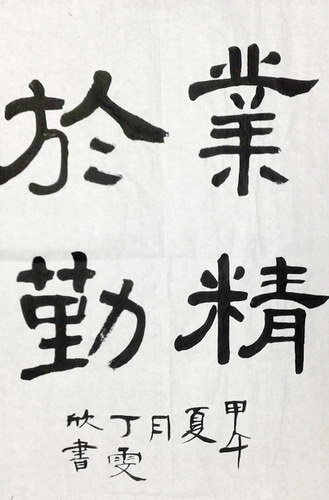 業精
於勤
甲午
夏
月
丁雯
欣書